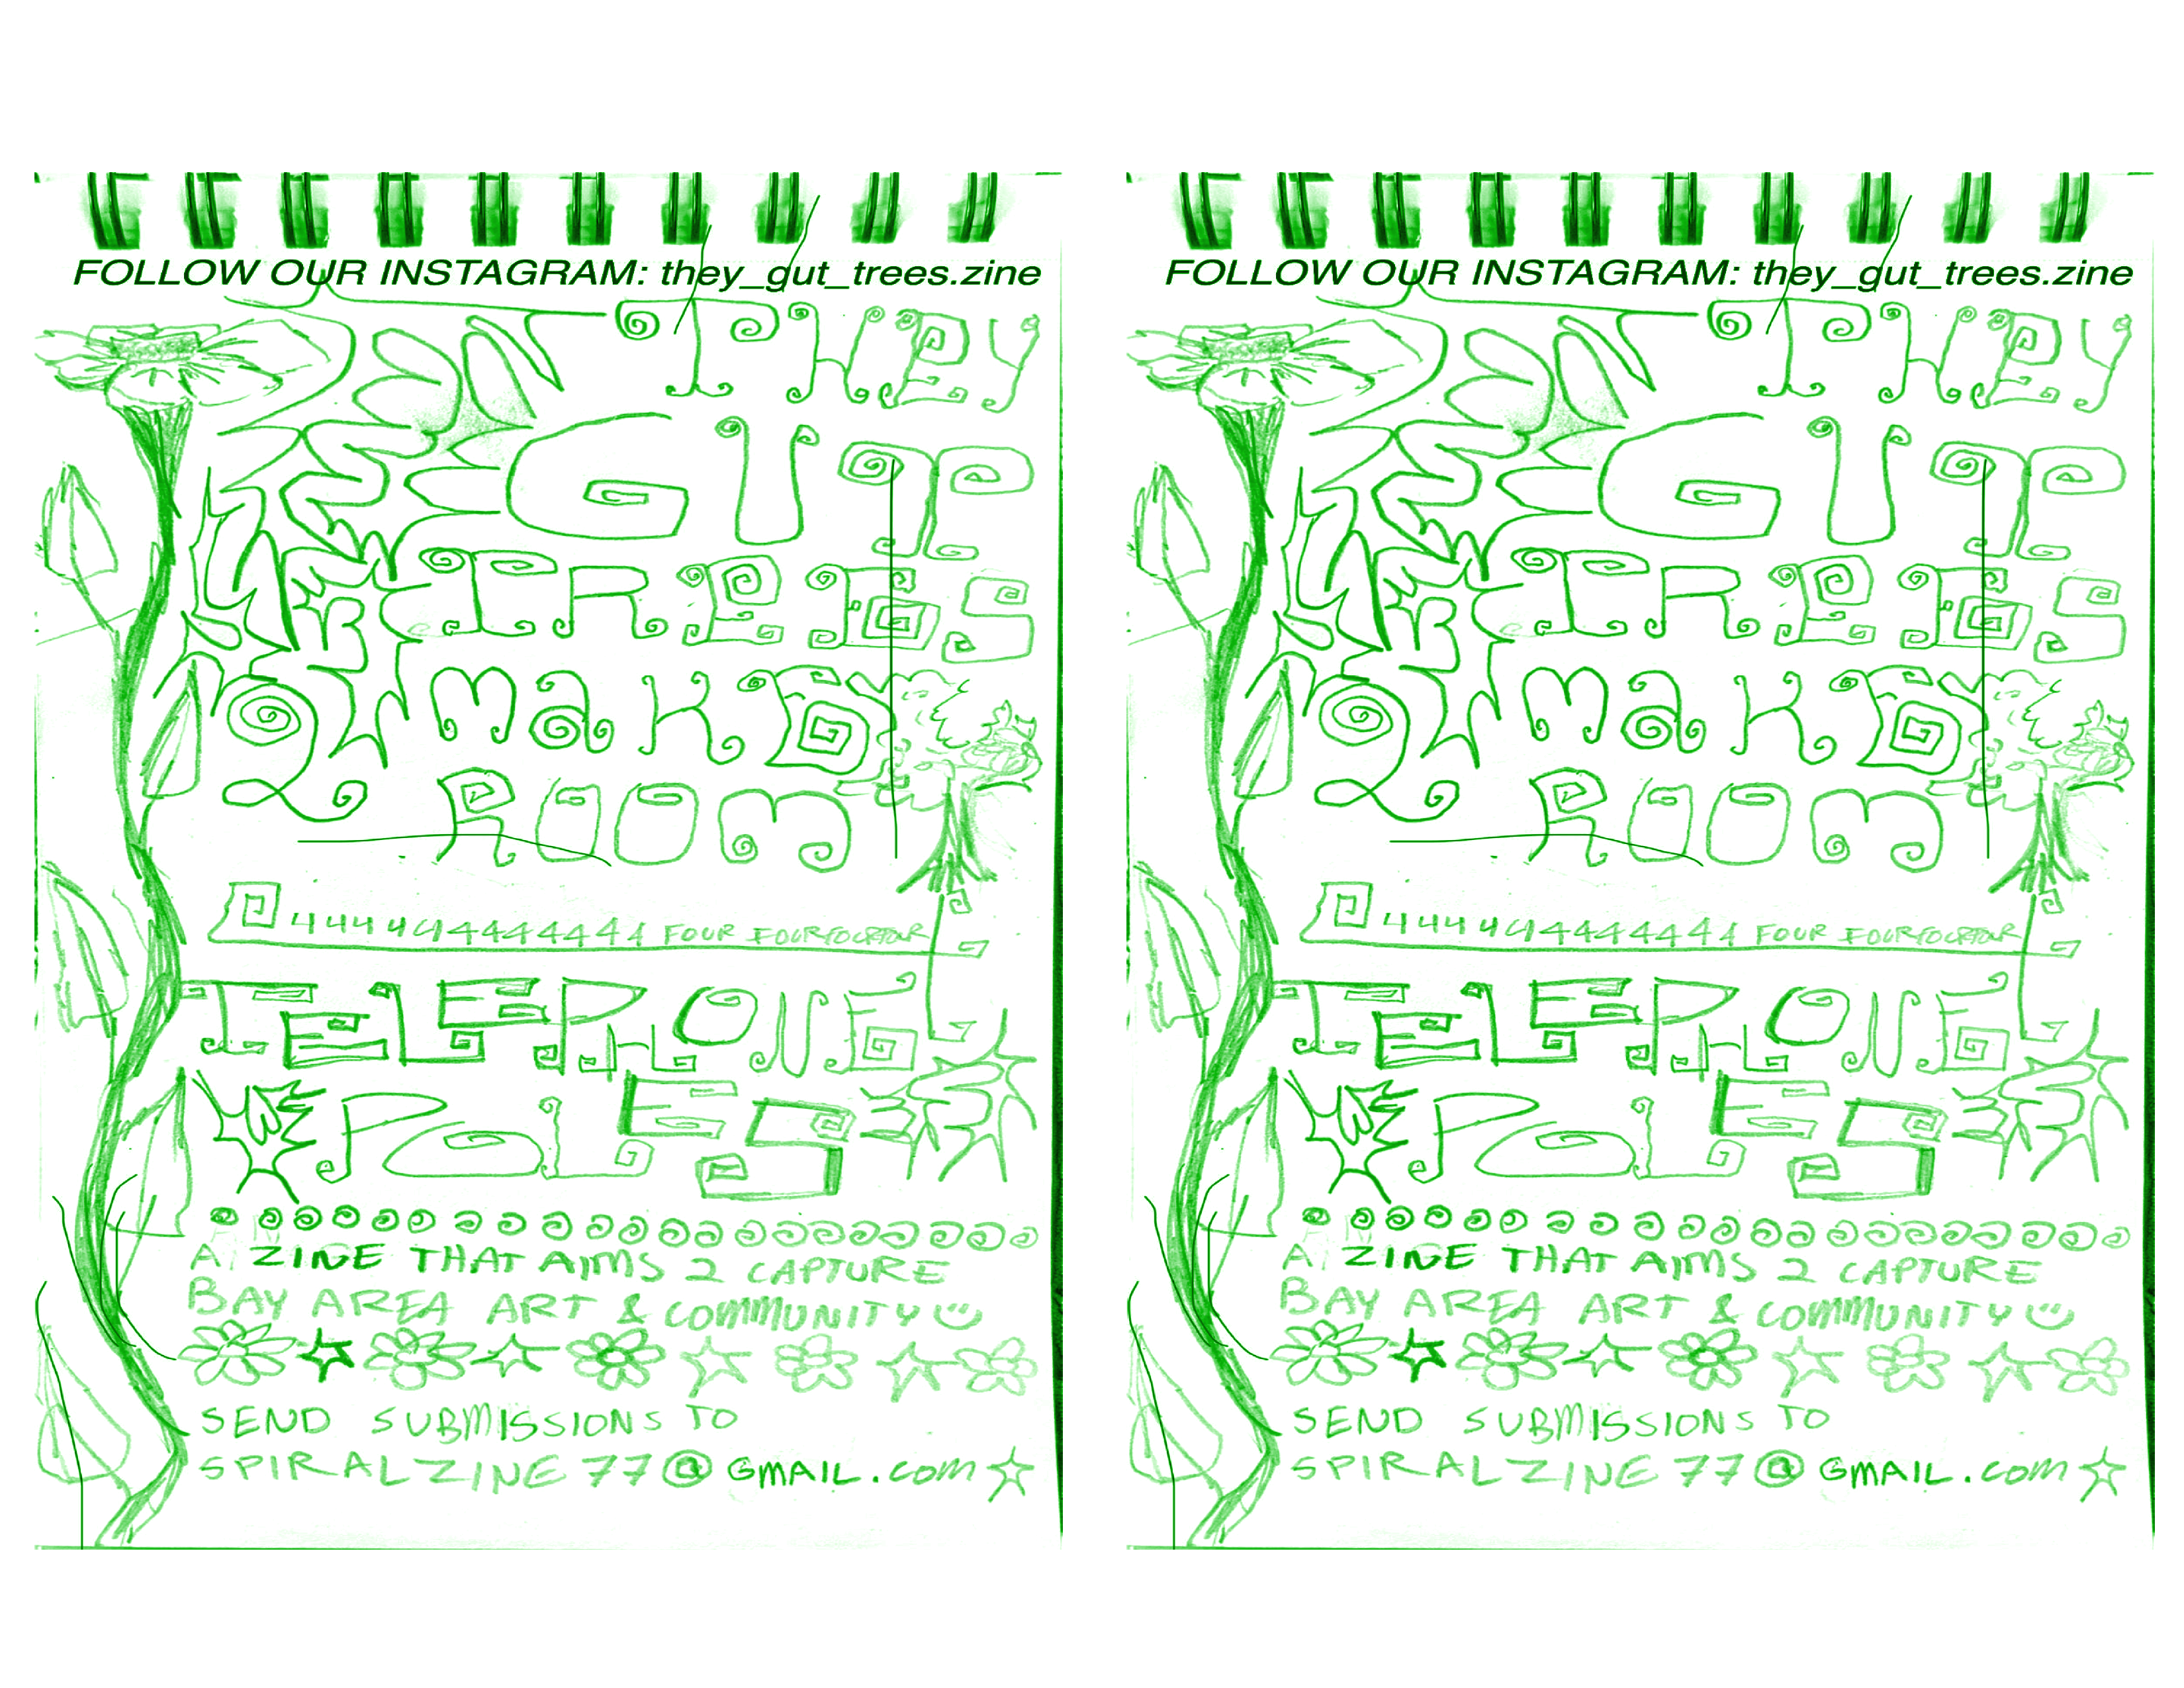 FOLLOW OUR INSTAGRAM: they_gut_trees.zine
THEY
GUT
TREES
2 MaKE
ROOM
444444444444 FOUR FOURFOURFOUR
TELEPHONE
POLES
A ZINE THAT AIMS 2 CAPTURE
BAY AREA ART & COMMUNITY
SEND SUBMISSIONS TO
SPIRALZINE77@GMAIL.com
FOLLOW OUR INSTAGRAM: they_gut_trees.zine
THEY
GUT
TREES
2 MaKE
ROOM
444444444444 FOUR FOURFOURFOUR
TELEPHONE
POLES
A ZINE THAT AIMS 2 CAPTURE
BAY AREA ART & COMMUNITY
SEND SUBMISSIONS TO
SPIRALZINE77@GMAIL.com